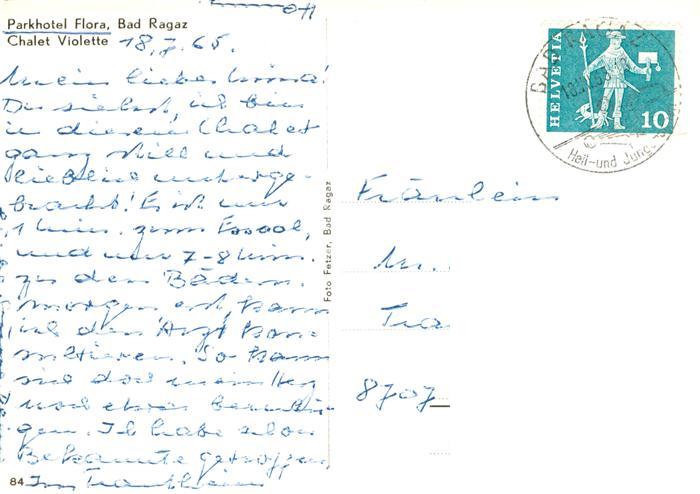 Parkhotel Flora, Bad Ragaz
Chalet Violette 18.7.65.
Mein liebes
Du siehst, ich bin
in diesem Chalet
ganz still und
lieblich unterge-
bracht! Es ist nur
1 Min. zum Essaal,
und nur 7-8 Min.
zu den Bädern.
Morgen erst kann
ich den Arzt kon-
sultieren. So kann
sich das mein Herz
noch etwas beruhi-
gen. Ich habe schon
Bekannte getroffen,
84
Foto Fetzer, Bad Ragaz
HELVETIA
10
BAD RAGAZ
Heil- und
Fräulein
M.
Tra
8707